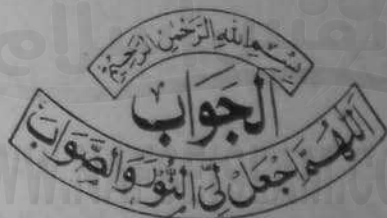 بِسْمِ اللهِ الرَّحْمٰنِ الرَّحِيْمِ
الجَوَاب
اَللّٰهُمَّ اجْعَلْ لِّیْ النُّوْرَ وَالصَّوَابَ